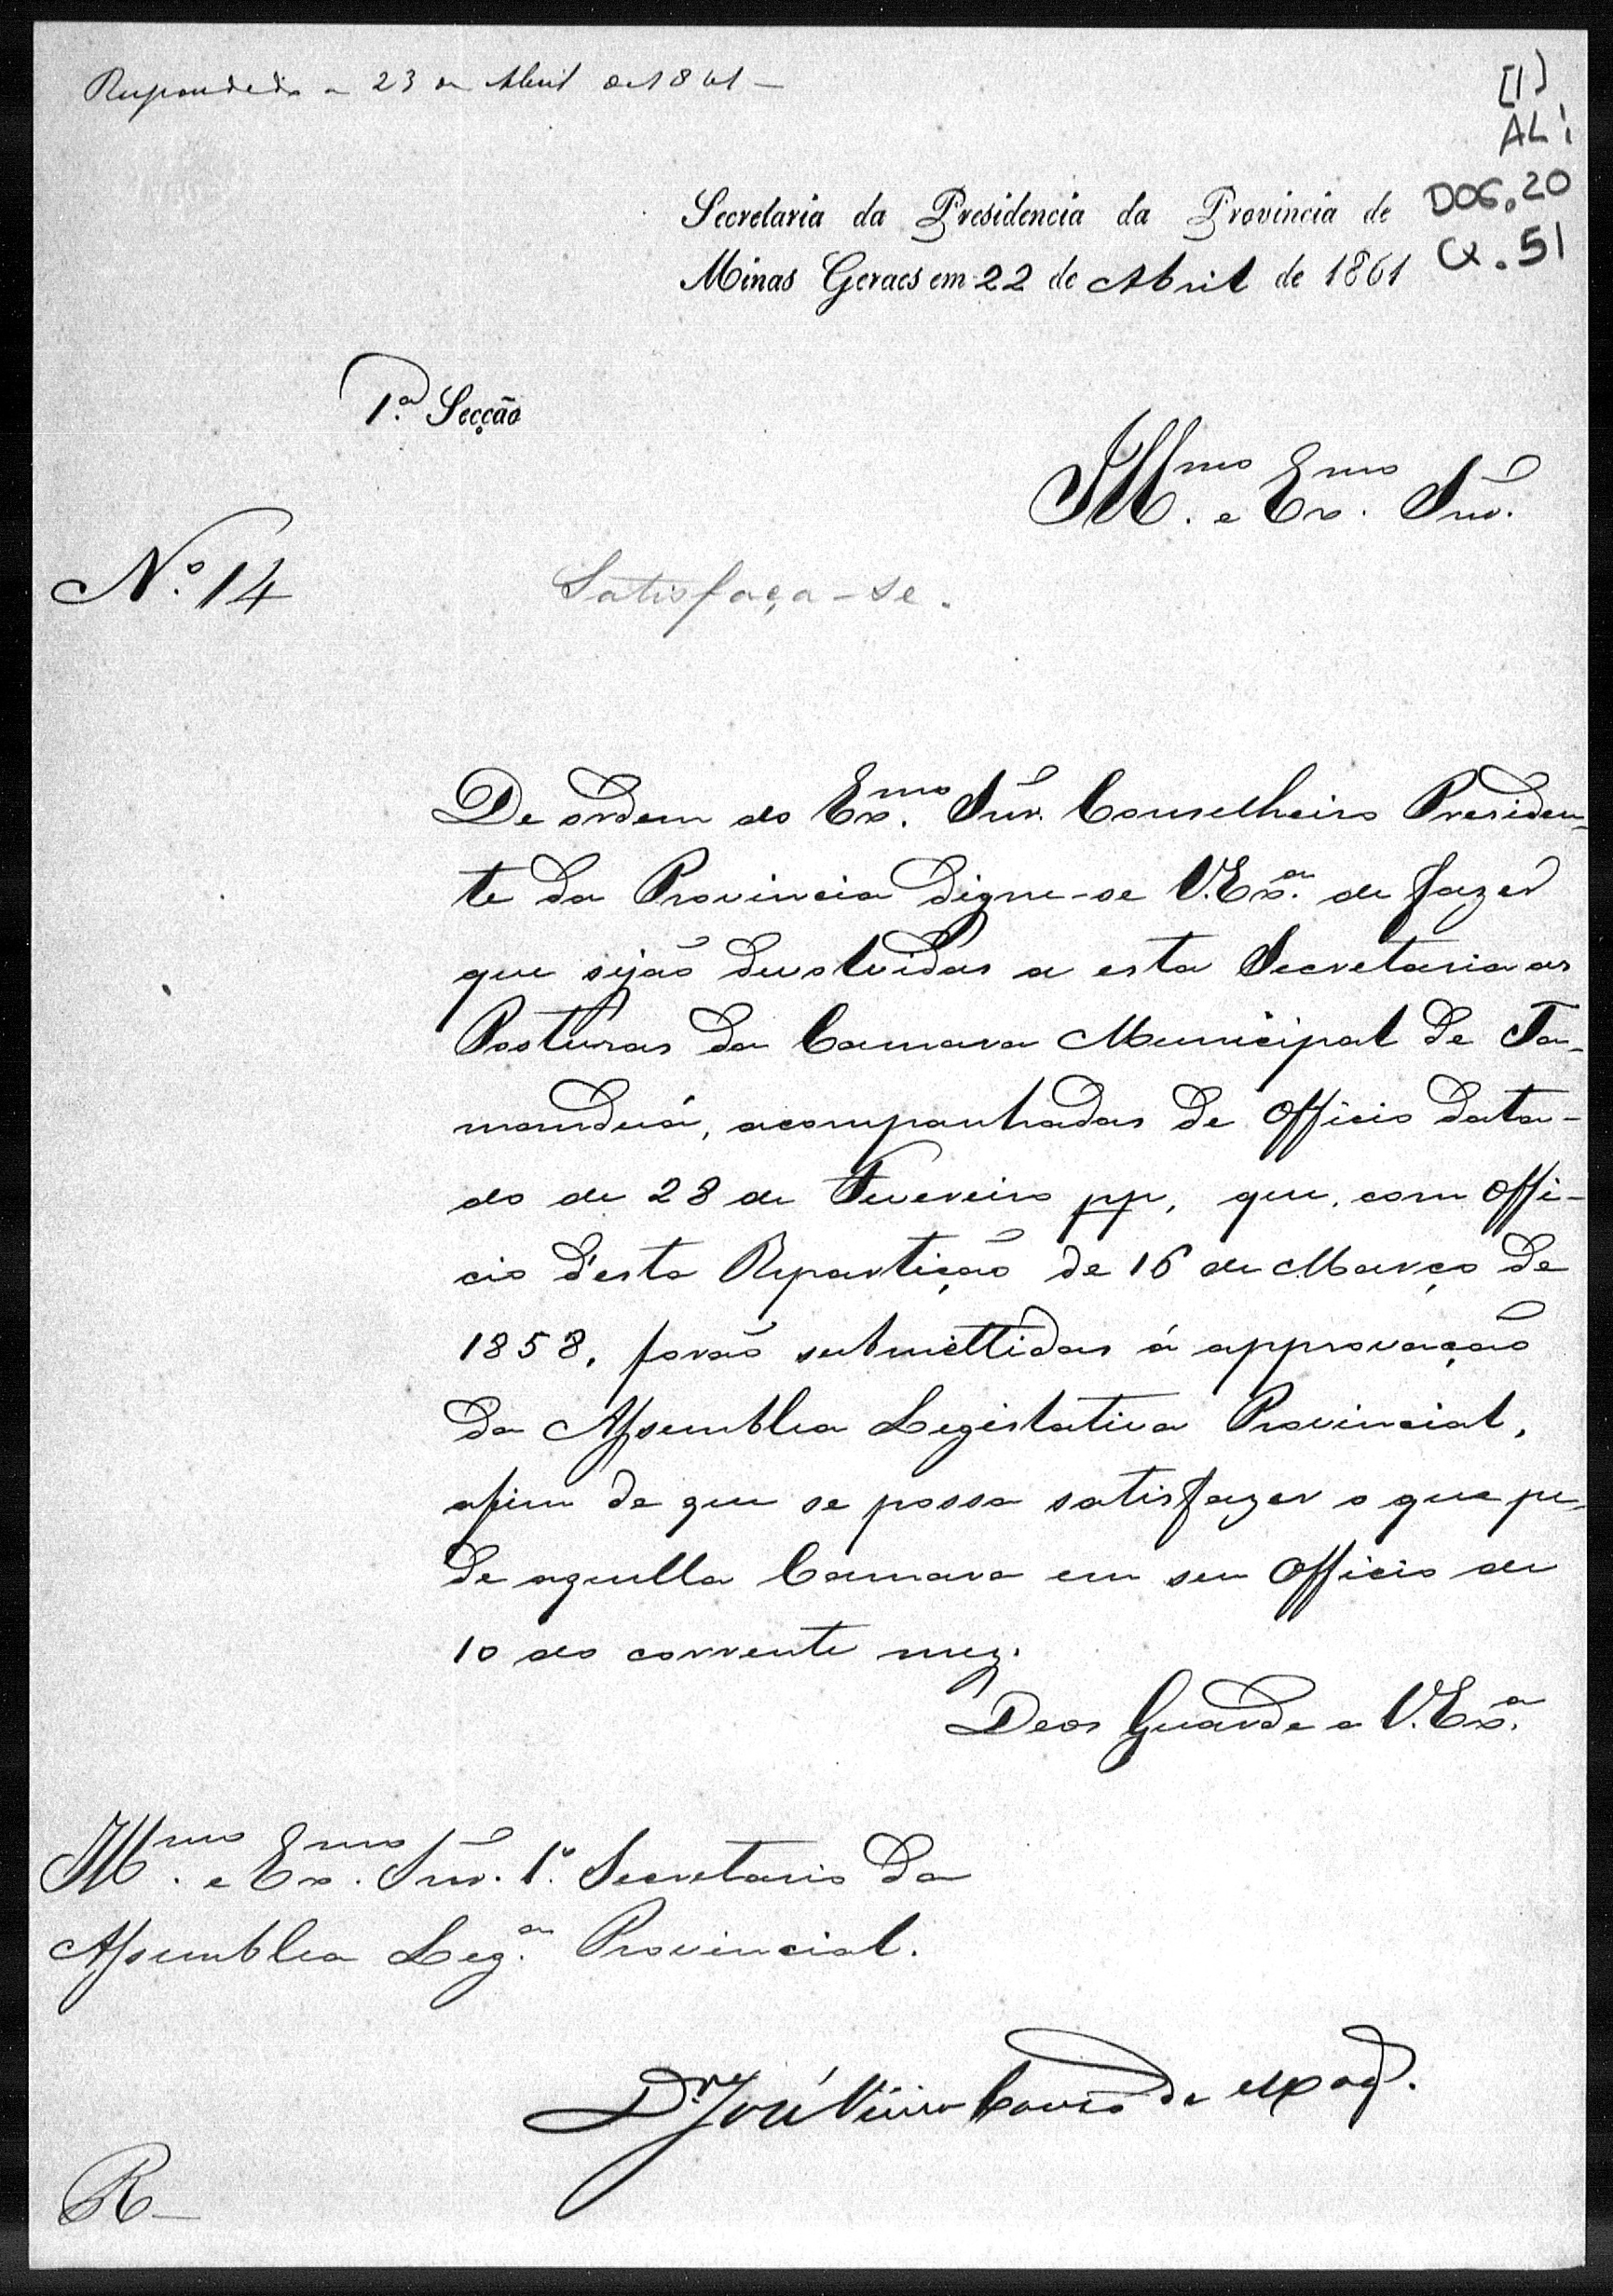 Respondido a 23 de Abril de 1861 —
[1)
AL 1
DOC. 20
CX. 51
Secretaria da Presidencia da Provincia de
Minas Geraes em 22 de Abril de 1861
1ª Secção
Illmo. e Exmo. Snr.
Nº 14
Satisfaça-se.
De ordem do Exmo. Snr. Conselheiro Presiden-
te da Provincia digne-se V. Exª. de fazer
que sejão devolvidas a esta Secretaria as
Posturas da Camara Municipal de Ta-
manduá, acompanhadas de Officio data-
do de 28 de Fevereiro pp, que, com offi-
cio d'esta Repartição de 16 de Março de
1858, forão submettidas á approvação
da Assemblea Legislativa Provincial,
afim de que se possa satisfazer o que pe-
de aquella Camara em seu Officio de
10 do corrente mez.
Deos Guarde a V. Exª.
Illmo. e Exmo. Snr. 1º Secretario da
Assemblea Legª. Provincial.
Dr. José Vieira Couto de Magˢ.
R—